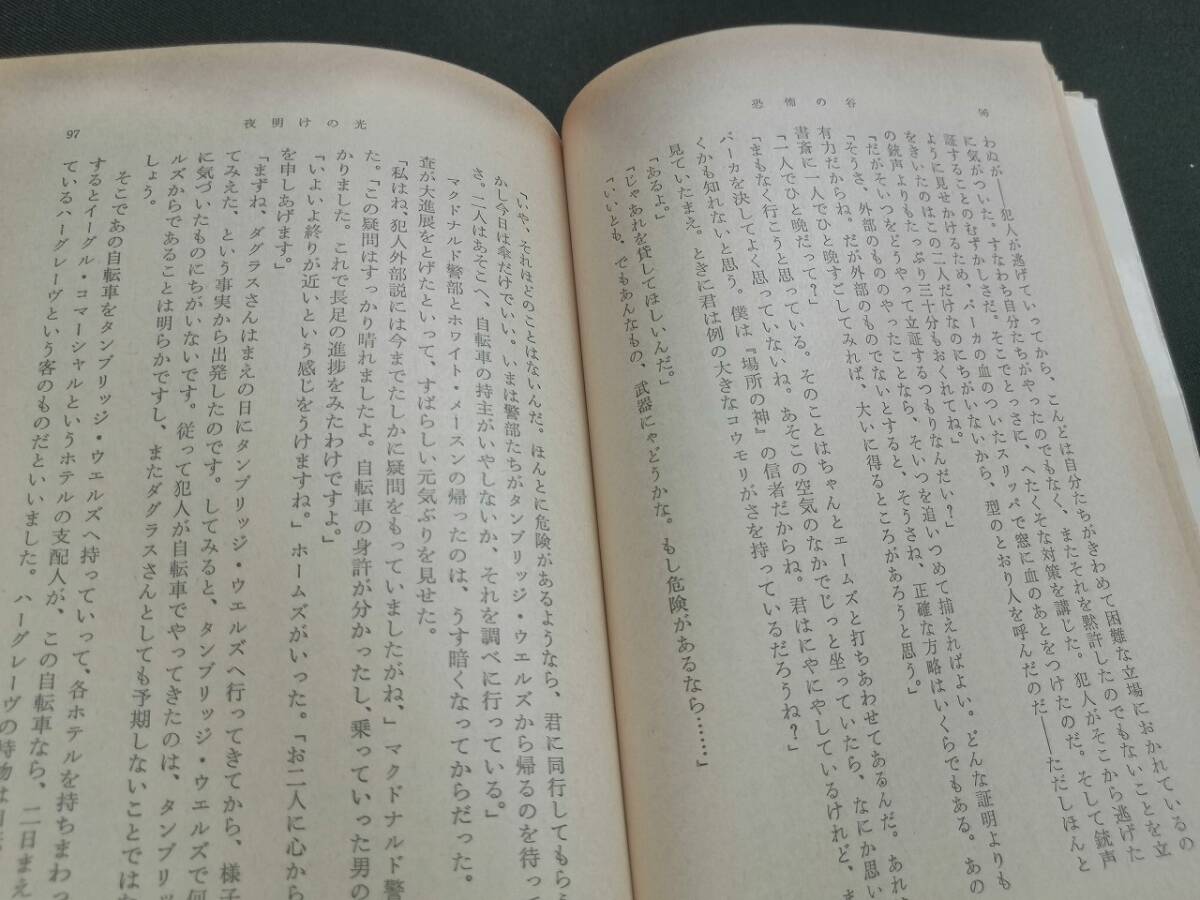 恐怖の谷
96
わぬが――犯人が逃げていってから、こんどは自分たちがきわめて困難な立場におかれているの
に気がついた。すなわち自分たちがやったのでもなく、またそれを黙許したのでもないことを立
証することのむずかしさだ。そこでとっさに、へたくそな対策を講じた。犯人がそこから逃げた
ように見せかけるため、バーカの血のついたスリッパで窓に血のあとをつけたのだ。そして銃声
をきいたのはこの二人だけなのにちがいないから、型のとおり人を呼んだのだ――ただしほんと
の銃声よりもたっぷり三十分もおくれてね」
「だがそいつをどうやって立証するつもりなんだい？」
「そうさ、外部のもののやったことなら、そいつを追いつめて捕えればよい。どんな証明よりも
有力だからね。だが外部のものでないとすると、そうさね、正確な方略はいくらでもある。あの
書斎に一人でひと晩すごしてみれば、大いに得るところがあろうと思う。」
「一人でひと晩だって？」
「まもなく行こうと思っている。そのことはちゃんとエームズと打ちあわせてあるんだ。あれ
バーカを決してよく思っていないね。あそこの空気のなかでじっと坐っていたら、なにか思い
くかも知れないと思う。僕は『場所の神』の信者だからね。君はにやにやしているけれど、ま
見ていたまえ。ときに君は例の大きなコウモリがさを持っているだろうね？」
「あるよ」
「じゃあれを貸してほしいんだ。」
「いいとも、でもあんなもの、武器にゃどうかな。もし危険があるなら……」
夜明けの光
97
「いや、それほどのことはないんだ。ほんとに危険があるようなら、君に同行してもら
かし今日は傘だけでいい。いまは警部たちがタンブリッジ・ウエルズから帰るのを待っ
さ。二人はあそこへ、自転車の持主がいやしないか、それを調べに行っている。」
マクドナルド警部とホワイト・メースンの帰ったのは、うす暗くなってからだった。
査が大進展をとげたといって、すばらしい元気ぶりを見せた。
「私はね、犯人外部説には今までたしかに疑問をもっていましたがね、」マクドナルド警
た。「この疑問はすっかり晴れましたよ。自転車の身許が分かったし、乗っていった男の
かりました。これで長足の進捗をみたわけですよ。」
「いよいよ終りが近いという感じをうけますね。」ホームズがいった。「お二人に心から
を申しあげます。」
「まずね、ダグラスさんはまえの日にタンブリッジ・ウエルズへ行ってきてから、様子
てみえた、という事実から出発したのです。してみると、タンブリッジ・ウエルズで何
に気づいたものにちがいないです。従って犯人が自転車でやってきたのは、タンブリッ
ルズからであることは明らかですし、またダグラスさんとしても予期しないことでは
しょう。
そこであの自転車をタンブリッジ・ウエルズへ持っていって、各ホテルを持ちまわっ
するとイーグル・コマーシャルというホテルの支配人が、この自転車なら、二日まえ
ているハーグレーヴという客のものだといいました。ハーグレーヴの持物は